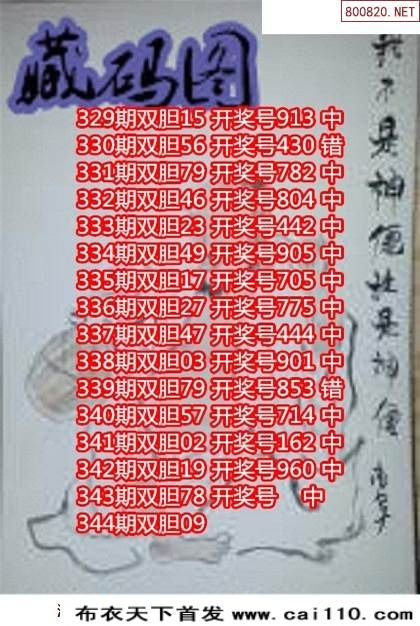 800820.NET
藏码图
329期双胆15 开奖号913 中
330期双胆56 开奖号430 错
331期双胆79 开奖号782 中
332期双胆46 开奖号804 中
333期双胆23 开奖号442 中
334期双胆49 开奖号905 中
335期双胆17 开奖号705 中
336期双胆27 开奖号775 中
337期双胆47 开奖号444 中
338期双胆03 开奖号901 中
339期双胆79 开奖号853 错
340期双胆57 开奖号714 中
341期双胆02 开奖号162 中
342期双胆19 开奖号960 中
343期双胆78 开奖号 中
344期双胆09
我不是神仙 是神仙
布衣天下首发 www.cai110.com